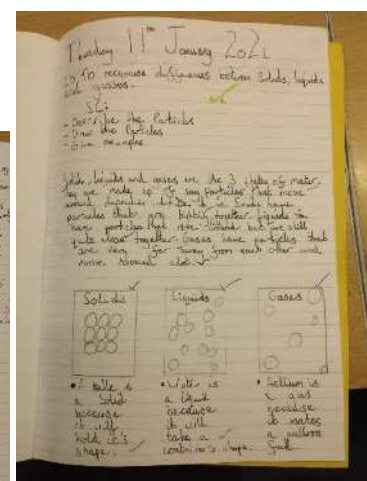 Thursday 11th January 202
LO: To recognise differences between Solids, liquids
and gasses.
S.C:
- Describe the Particles
- Draw the Particles
- Give examples
Solids, Liquids and gases are the 3 states of mater.
they are made up of particles that move
around Solids have
particles that are tightly together. Liquids
have particles that move around but are still
quite close together. Gases have particles that
are very far away from each other and
move around
Solids
Liquids
Gases
• A table is
a Solid
because
it will
hold it's
shape.
• Water is
a liquid
because
it will
take a
container's shape.
• Hellium is
a gas
because
it makes
a balloon